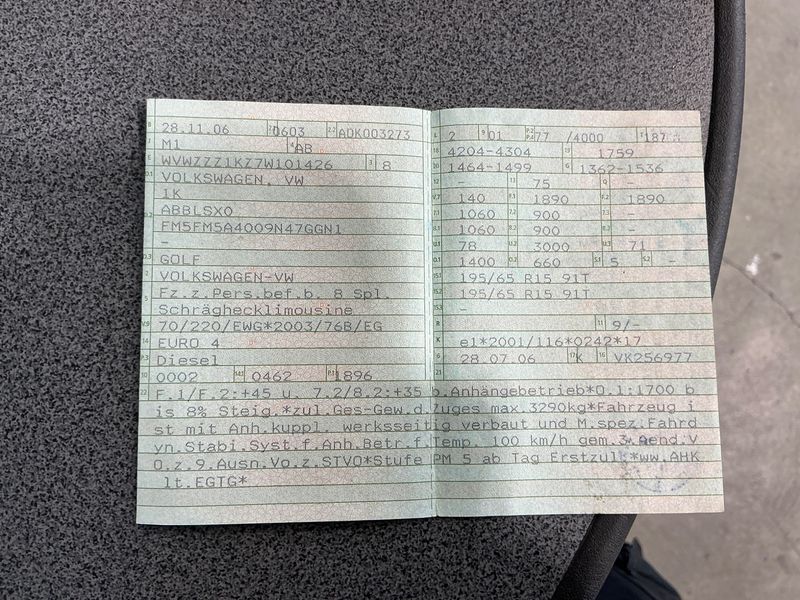 B 28.11.06 2.1 0603 2.2 ADK003273
J M1 4 AB
E WVWZZZ1KZ7W101426 3 8
D.1 VOLKSWAGEN, VW
1K
D.2 ABBLSX0
FM5FM5A4009N47GGN1
-
D.3 GOLF
2 VOLKSWAGEN-VW
5 Fz.z.Pers.bef.b. 8 Spl.
Schräghecklimousine
V.9 70/220/EWG*2003/76B/EG
14 EURO 4
P.3 Diesel
10 0002 14.1 0462 P.1 1896
L 2 9 01 P.2 P.4 77 /4000 T 187
18 4204-4304 19 1759
20 1464-1499 G 1362-1536
12 - 13 75 Q -
V.7 140 F.1 1890 F.2 1890
7.1 1060 7.2 900 7.3 -
8.1 1060 8.2 900 8.3 -
U.1 78 U.2 3000 U.3 71
O.1 1400 O.2 660 S.1 5 S.2 -
15.1 195/65 R15 91T
15.2 195/65 R15 91T
15.3 -
R 11 9/-
K e1*2001/116*0242*17
6 28.07.06 17 K 16 VK256977
21
22 F.1/F.2:+45 u. 7.2/8.2:+35 b.Anhängebetrieb*O.1:1700 b
is 8% Steig.*zul.Ges-Gew.d.Zuges max.3290kg*Fahrzeug i
st mit Anh.kuppl. werksseitig verbaut und M.spez.Fahrd
yn.Stabi.Syst.f.Anh.Betr.f.Temp. 100 km/h gem.3.Aend.V
O.z.9.Ausn.Vo.z.STVO*Stufe PM 5 ab Tag Erstzul.*ww.AHK
lt.EGTG*